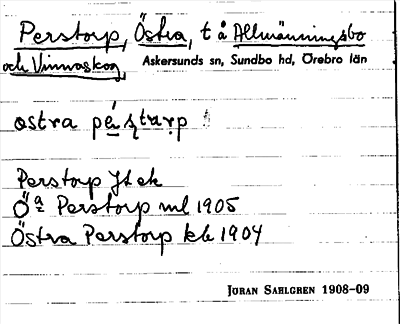 Perstorp, Östra, t å Allmänningsbo
och Vinnaskog, Askersunds sn, Sundbo hd, Örebro län
ostra pé̱ʂtuṛp
Perstorp Jt ek
Öª Perstorp ml 1905
Östra Perstorp kb 1904
JÖRAN SAHLGREN 1908-09